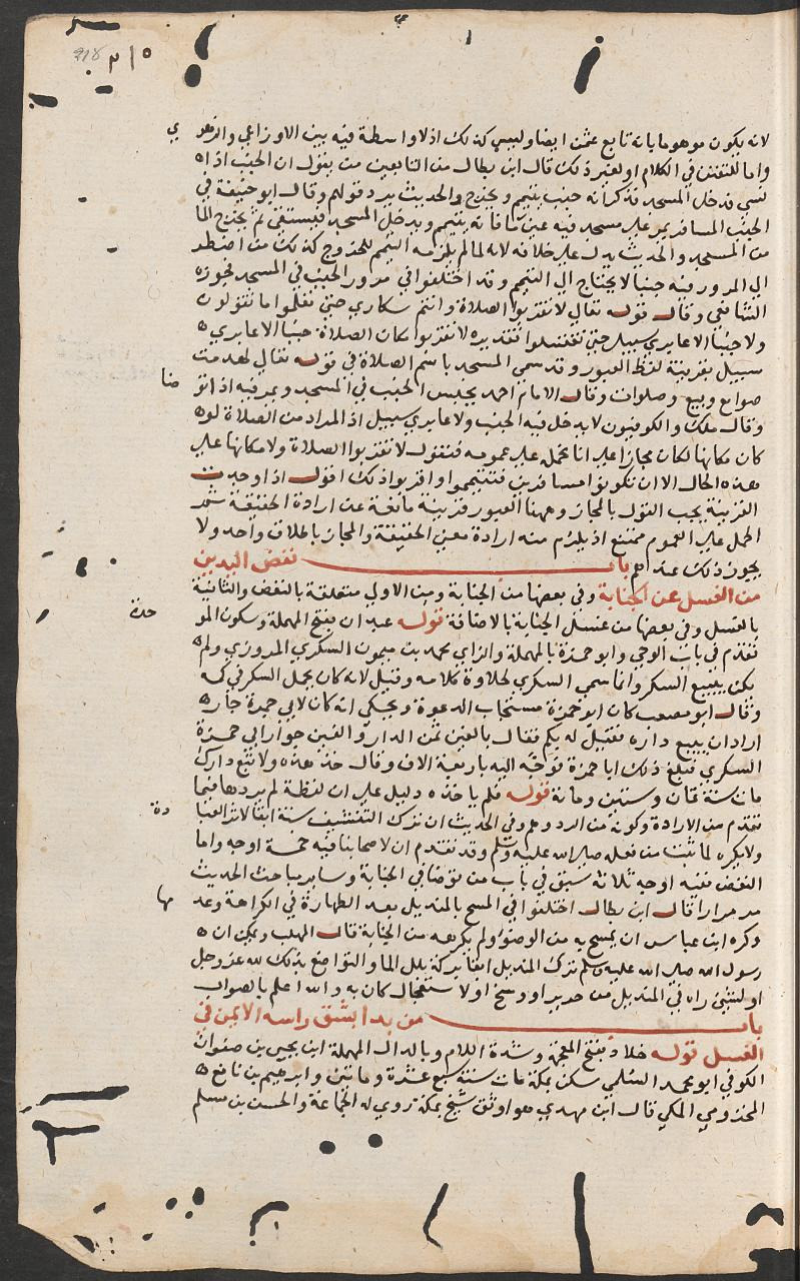 ٢١٥
218
لانه يكون موهوما بانه تابع عثمن ايضا وليس كذلك اذ لا واسطة فيه بين الاوزاعي والزهر ي
واما للتفنن في الكلام او لغير ذلك قال ابن بطال من التابعين من يقول ان الجنب اذا
نسي فدخل المسجد فذكر انه جنب يتيمم ويخرج والحديث يرد قولهم وقال ابو حنيفة في
الجنب المسافر يمر على مسجد فيه عين ماء فانه يتيمم ويدخل المسجد فيستقي ثم يخرج الما
من المسجد والحديث يدل على خلافه لانه لما لم يلزمه التيمم للخروج كذلك من اضطر
الي المرور فيه جنبا لا يحتاج الي التيمم وقد اختلفوا في مرور الجنب في المسجد فجوزه
الشافعي وقال قوله تعالي لا تقربوا الصلاة وانتم سكاري حتي تعلموا ما تقولون
ولا جنبا الا عابري سبيل حتي تغتسلوا تقديره لا تقربوا مكان الصلاة جنبا الا عابري
سبيل بقرينة لفظ العبور وقد سمي المسجد باسم الصلاة في قوله تعالي لهدمت
صوامع وبيع وصلوات وقال الامام احمد يجلس الجنب في المسجد ويمر فيه اذا تو ضا
وقال ملك والكوفيون لا يدخل فيه الجنب ولا عابري سبيل اذ المراد من الصلاة لو
كان مكانها لكان مجازا علي انا نحمله علي عمومه فنقول لا تقربوا الصلاة ولا مكانها علي
هذه الحال الا ان تكونوا مسافرين فتيمموا واقربوا ذلك اقول اذا وجدت
القرينة يجب القول بالمجاز وههنا العبور قرينة مانعة عن ارادة الحقيقة ثم
الحمل علي العموم ممتنع اذ يلزم منه ارادة معني الحقيقة والمجاز باطلاق واحد ولا
يجوز ذلك عندهم باب نفض اليدين
من الغسل عن الجنابة وفي بعضها من الجنابة ومن الاولي متعلقة بالنفض والثانية
بالغسل وفي بعضها من غسل الجنابة بالاضافة قوله عبدان بفتح المهملة وسكون المو حدة
تقدم في باب الوحي وابو حمزة بالمهملة والزاي محمد بن ميمون السكري المروزي ولم
يكن يبيع السكر وانما سمي السكري لحلاوة كلامه وقيل لانه كان يحمل السكر في كمه
وقال ابو مصعب كان ابو حمزة مستجاب الدعوة ويحكي انه كان لابي حمزة جار
اراد ان يبيع داره فقيل له بكم فقال بالفين ثمن الدار والفين جوار ابي حمزة
السكري فبلغ ذلك ابا حمزة فوجه اليه باربعة الاف وقال خذ هذه ولا تبع دارك
مات سنة ثمان وستين ومائة قوله فلم ياخذه دليل علي ان لفظة لم يردها فيما
تقدم من الارادة وكونه من الرد وهم وفي الحديث ان ترك التنشيف سنة ابقا لاثر العبا دة
ولا يكره لما ثبت من فعله صلي الله عليه وسلم وقد تقدم ان لاصحابنا فيه خمسة اوجه واما
النفض ففيه اوجه ثلاثة سبق في باب من توضا في الجنابة وساير مباحث الحديث
مر مرارا قال ابن بطال اختلفوا في المسح بالمنديل بعد الطهارة في الكراهة وعد مها
وكره ابن عباس ان يمسح به من الوضوء ولم يكرهه من الجنابة قال المهلب ويمكن ان
رسول الله صلي الله عليه وسلم ترك المنديل ابقا بركة بلل الما والتواضع بذلك لله عز وجل
او لشئ راه في المنديل من حرير او وسخ او لاستعجال كان به والله اعلم بالصواب
باب من بدا بشق راسه الايمن في
الغسل قوله خلاد بفتح المعجمة وشدة اللام وبالدال المهملة ابن يحيي بن صفوان
الكوفي ابو محمد السلمي سكن بمكة مات سنة سبع عشرة ومائتين وابرهيم بن نافع
المخزومي المكي قال ابن مهدي هو اوثق شيخ بمكة روي له الجماعة والحسن بن مسلم